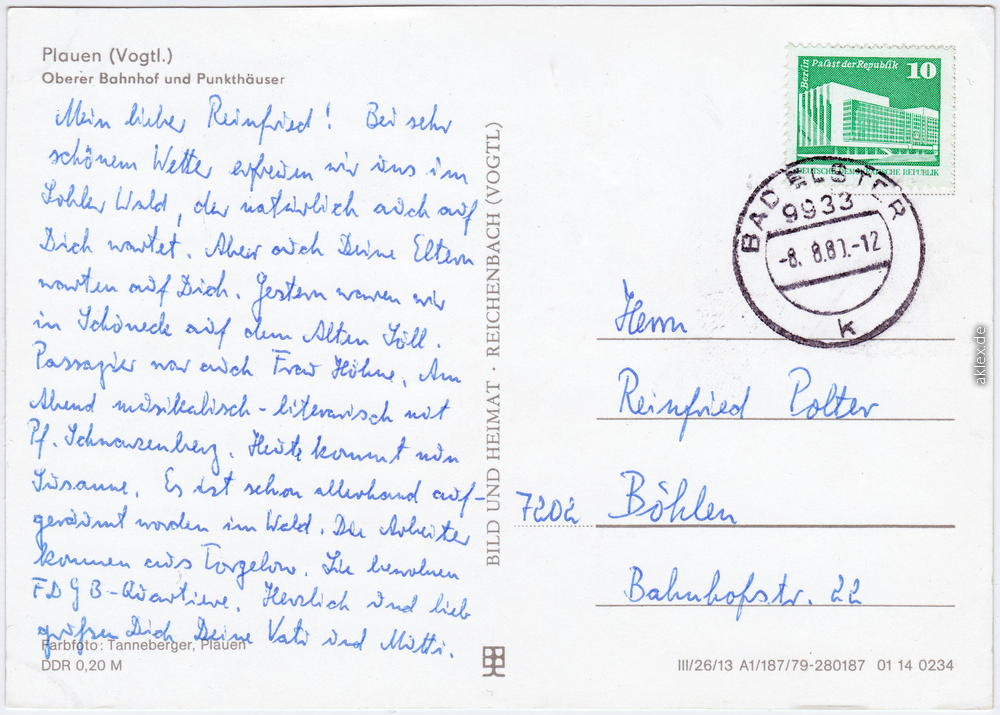 Plauen (Vogtl.)
Oberer Bahnhof und Punkthäuser
Mein lieber Reinfried! Bei sehr
schönem Wetter erfreuen wir uns im
Sohler Wald, der natürlich auch auf
Dich wartet. Aber auch Deine Eltern
warten auf Dich. Gestern waren wir
in Schöneck auf dem Alten Söll.
Passagier war auch Frau Höhne. Am
Abend musikalisch-literarisch mit
Pf. Schwarzenberg. Heute kommt nun
Susanne. Es ist schon allerhand auf-
geräumt worden im Wald. Die Arbeiter
kommen aus Torgelow. Sie bewohnen
FDGB-Quartiere. Herzlich und lieb
grüßen Dich Deine Vati und Mutti.
Farbfoto: Tanneberger, Plauen
DDR 0,20 M
BILD UND HEIMAT · REICHENBACH (VOGTL)
Berlin Palast der Republik 10
DEUTSCHE DEMOKRATISCHE REPUBLIK
BAD ELSTER
9933
-8. 8.81.-12
k
Herrn
Reinfried Polter
7202 Böhlen
Bahnhofstr. 22
III/26/13 A1/187/79-280187 01 14 0234
aklex.de